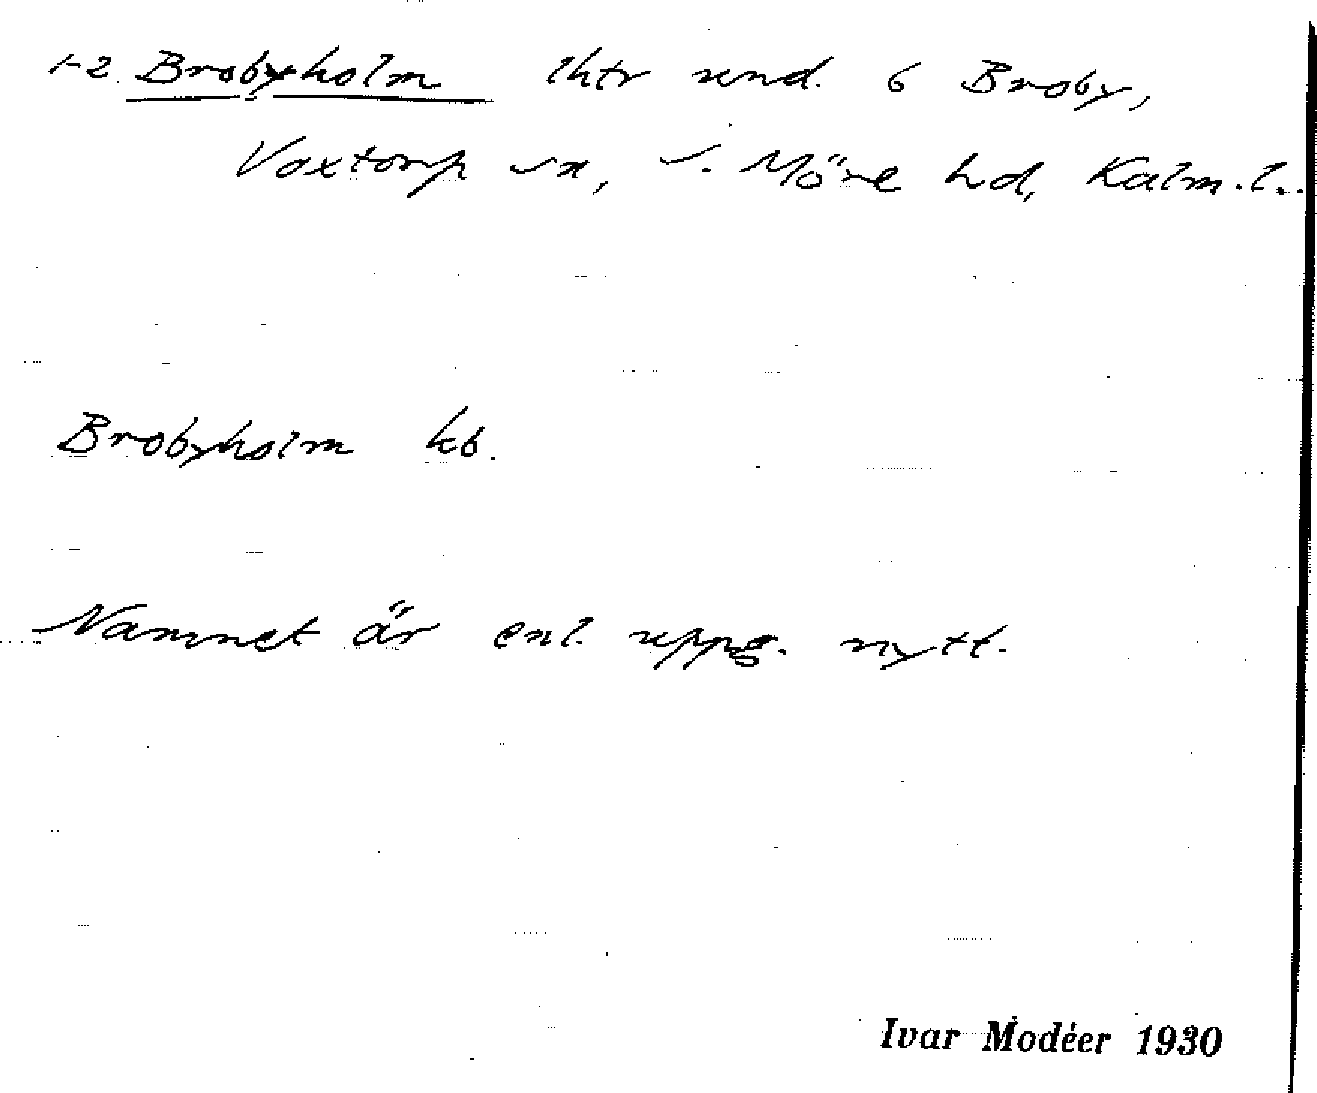 1-2. Brobyholm lhtr und. 6 Broby,
Voxtorp sn, S. Möre hd, Kalm. l.
Brobyholm kb.
Namnet är enl. uppg. nytt.
Ivar Modéer 1930